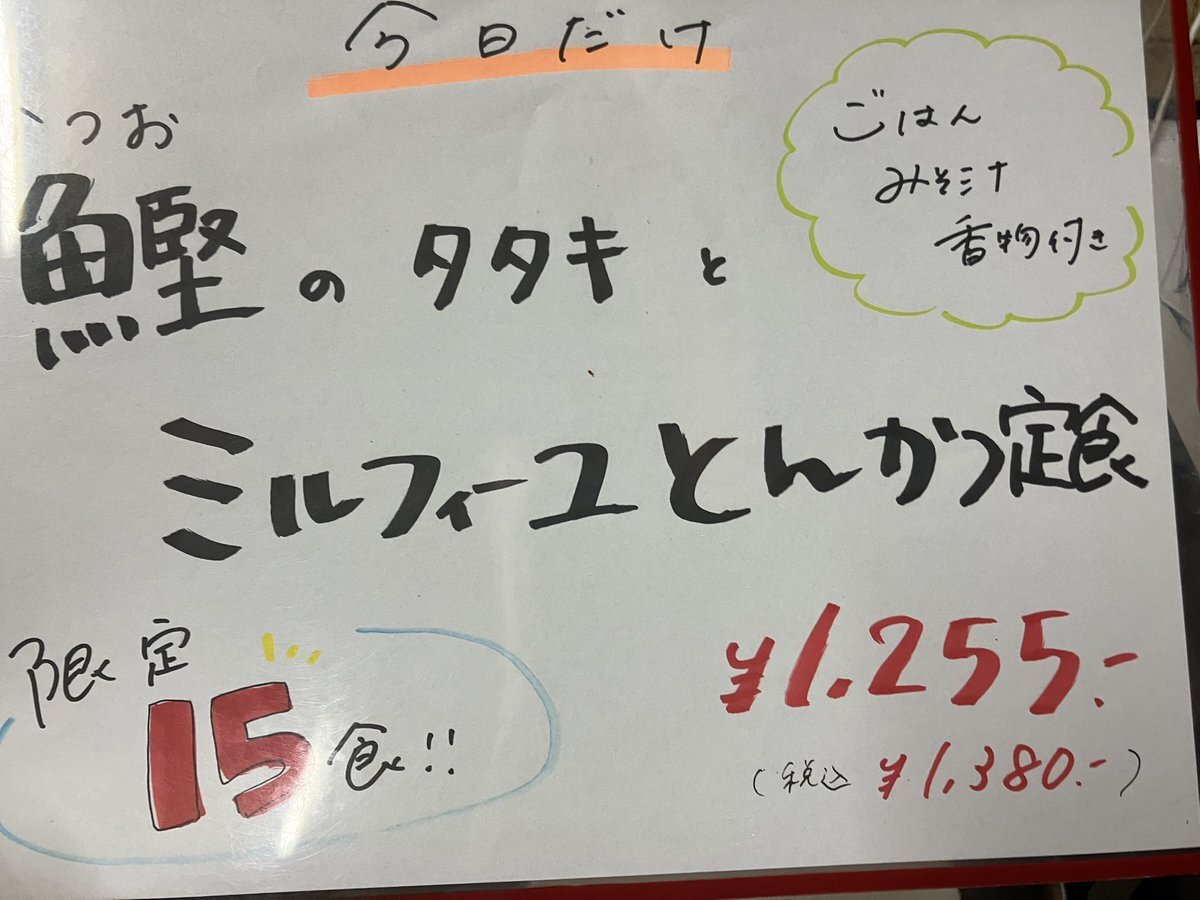 今日だけ
かつお
鰹のタタキと
ミルフィーユとんかつ定食
ごはん
みそ汁
香物付き
限定
15食!!
¥1.255.-
(税込 ¥1,380.-)